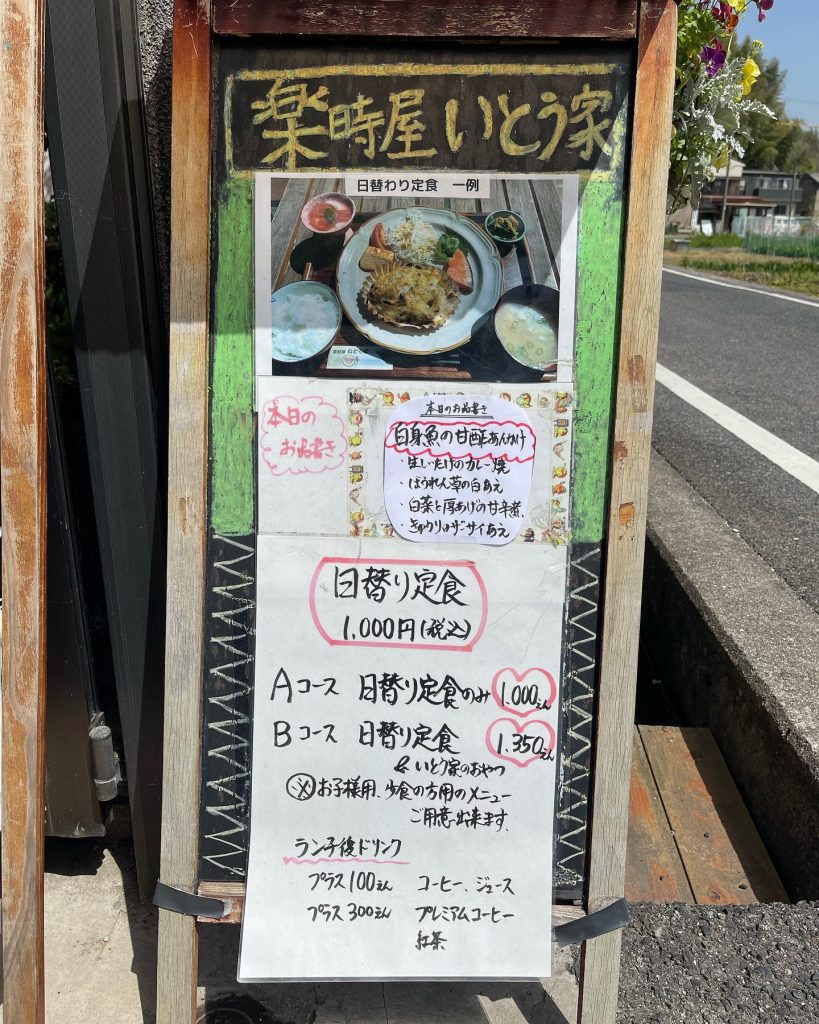 楽時屋 いとう家
日替わり定食 一例
本日の
お品書き
本日のお品書き
白身魚の甘酢あんかけ
・生しいたけのカレー焼
・ほうれん草の白あえ
・白菜と厚あげの甘辛煮
・きゅうりのザーサイあえ
日替り定食
1,000円(税込)
Aコース 日替り定食のみ 1.000えん
Bコース 日替り定食 1.350えん
いとう家のおやつ
※お子様用、少食の方用のメニュー
ご用意出来ます。
ランチ後ドリンク
プラス100えん コーヒー、ジュース
プラス300えん プレミアムコーヒー
紅茶